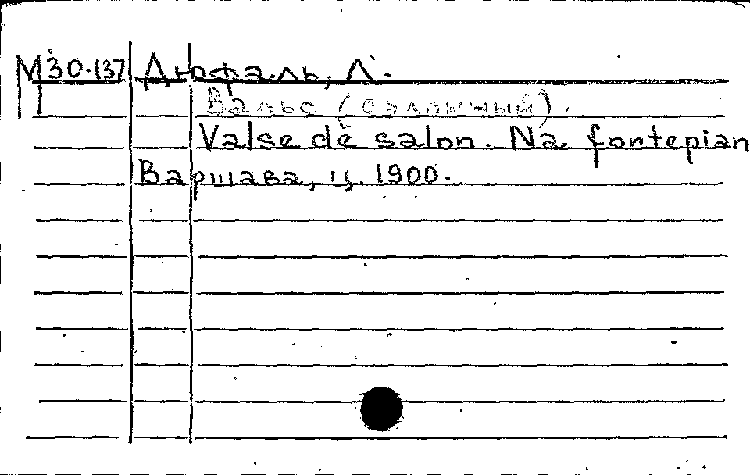 М30·137 Дюфаль, Л.
Вальс (салонный).
Valse de salon. Na fortepian
Варшава, ц. 1900.